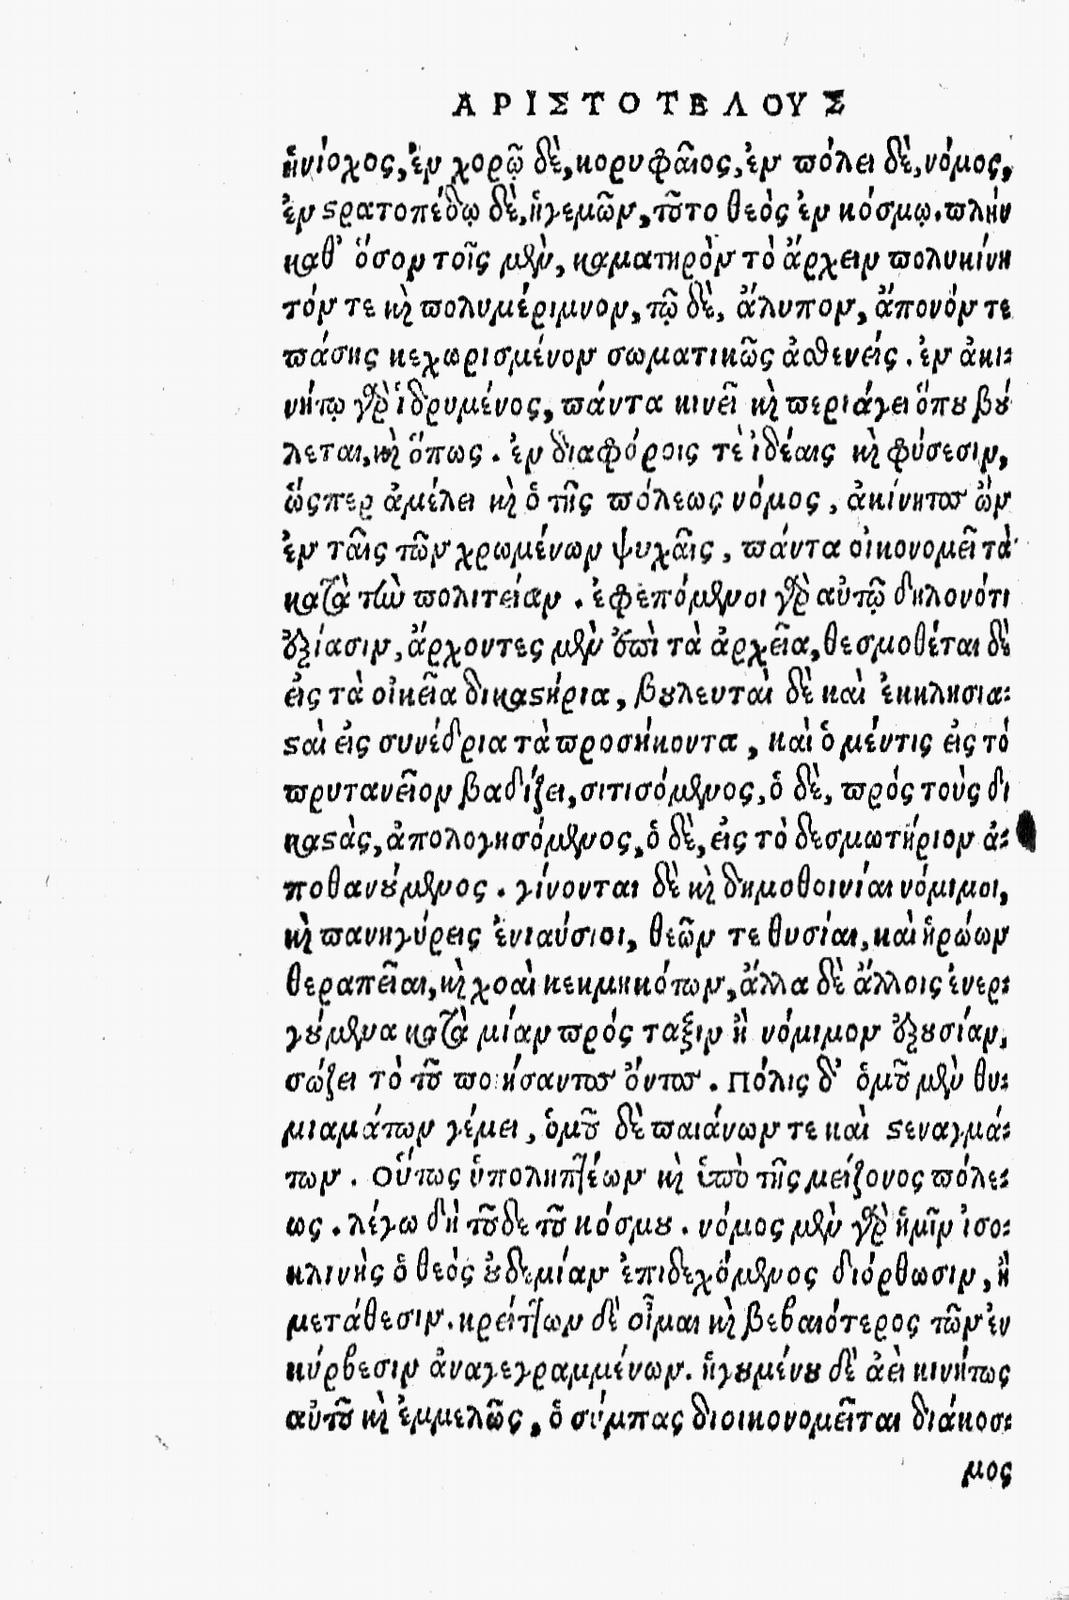 ΑΡΙΣΤΟΤΕΛΟΥΣ
ἡνίοχος, ἐν χορῷ δὲ, κορυφαῖος, ἐν πόλει δὲ, νόμος,
ἐν στρατοπέδῳ δὲ, ἡγεμῶν, τοῦτο θεὸς ἐν κόσμῳ. πλὴν
καθ' ὅσον τοῖς μὲν, καματηρὸν τὸ ἄρχειν πολυκίνη
τόν τε καὶ πολυμέριμνον, τῷ δὲ, ἄλυπον, ἄπονόν τε
πάσης κεχωρισμένον σωματικῶς ἀσθενείς. ἐν ἀκι:
νήτῳ γὰρ ἱδρυμένος, πάντα κινεῖ καὶ περιάγει ὅπου βού
λεται, καὶ ὅπως. ἐν διαφόροις τὲ ἰδέαις καὶ φύσεσιν,
ὥςπερ ἀμέλει καὶ ὁ τῆς πόλεως νόμος, ἀκίνητος ὢν
ἐν ταῖς τῶν χρωμένων ψυχαῖς, πάντα οἰκονομεῖ τὰ
κατὰ τὴν πολιτείαν. ἐφεπόμενοι γὰρ αὐτῷ δηλονότι
ἐξίασιν, ἄρχοντες μὲν ἐπὶ τὰ ἀρχεῖα, θεσμοθέται δὲ
εἰς τὰ οἰκεῖα δικαστήρια, βουλευταὶ δὲ καὶ ἐκκλησια:
σταὶ εἰς συνέδρια τὰ προσήκοντα, καὶ ὁ μέντις εἰς τό
πρυτανεῖον βαδίζει, σιτισόμενος, ὁ δὲ, πρός τοὺς δι
καστὰς, ἀπολογησόμενος, ὁ δὲ, εἰς τὸ δεσμωτήριον ἀ:
ποθανούμενος. γίνονται δὲ καὶ δημοθοινίαι νόμιμοι,
καὶ πανηγύρεις ἐνιαύσιοι, θεῶν τε θυσίαι, καὶ ἡρώων
θεραπεῖαι, καὶ χοαὶ κεκμηκότων, ἄλλα δὲ ἄλλοις ἐνερ:
γούμενα κατὰ μίαν πρός ταξιν ἢ νόμιμον ἐξουσίαν,
σώζει τὸ τοῦ ποιήσαντος ὄντος. Πόλις δ' ὁμοῦ μὲν θυ:
μιαμάτων γέμει, ὁμοῦ δὲ παιάνων τε καὶ στεναγμά:
των. Οὕτως ὑποληπτέων καὶ ὑπὸ τῆς μείζονος πόλε:
ως. λέγω δὴ τοῦδε τοῦ κόσμου. νόμος μὲν γὰρ ἡμῖν ἰσο:
κλινὴς ὁ θεὸς οὐδεμίαν ἐπιδεχόμενος διόρθωσιν, ἢ
μετάθεσιν. κρείττων δὲ οἶμαι καὶ βεβαιότερος τῶν ἐν
κύρβεσιν ἀναγεγραμμένων. ἡγουμένου δὲ ἀεὶ κινήτως
αὐτοῦ καὶ ἐμμελῶς, ὁ σύμπας διοικονομεῖται διάκοσ:
μος